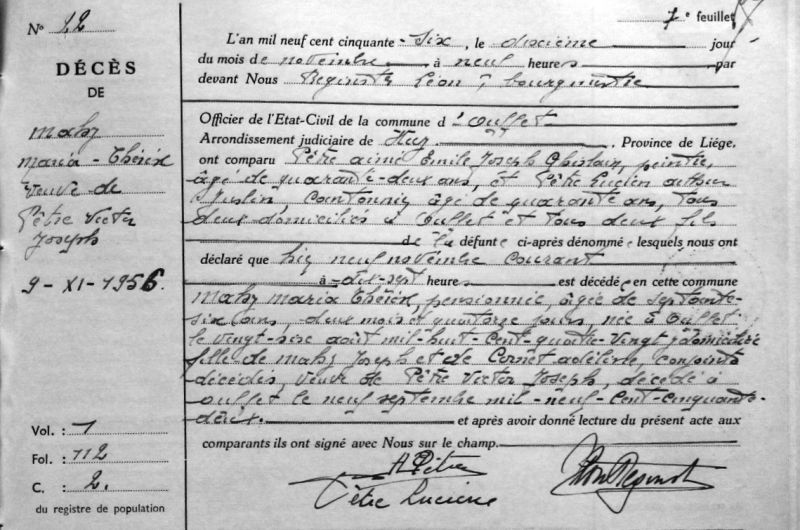 N° 12
DÉCÈS
DE
Mahy
Maria-Thérèse
Veuve de
Pêtre Victor
Joseph
9-XI-1956.
Vol. : 1
Fol. : 112
C. : 2.
du registre de population
7e feuillet
L'an mil neuf cent cinquante-six, le dixième jour
du mois de novembre à neuf heures par
devant Nous Reginster Léon, bourgmestre
Officier de l'Etat-Civil de la commune d'Ouffet
Arrondissement judiciaire de Huy, Province de Liége,
ont comparu Pêtre Aimé Emile Joseph Ghislain, peintre,
âgé de quarante-deux ans, et Pêtre Lucien Arthur
Justin, cantonnier, âgé de quarante ans, tous
deux domiciliés à Ouffet et tous deux fils
de la défunte ci-après dénommée lesquels nous ont
déclaré que hier neuf novembre courant
à dix-sept heures est décédée en cette commune
Mahy Maria Thérèse, pensionnée, âgée de septante-
six ans, deux mois et quatorze jours, née à Ouffet
le vingt-six août mil-huit-cent-quatre-vingt, y domiciliée
fille de Mahy Joseph et de Cornet Adeline, conjoints
décédés, veuve de Pêtre Victor Joseph, décédé à
Ouffet le neuf septembre mil-neuf-cent-cinquante-
deux. et après avoir donné lecture du présent acte aux
comparants ils ont signé avec Nous sur le champ.
A Pêtre
Pêtre Lucien
Léon Reginster